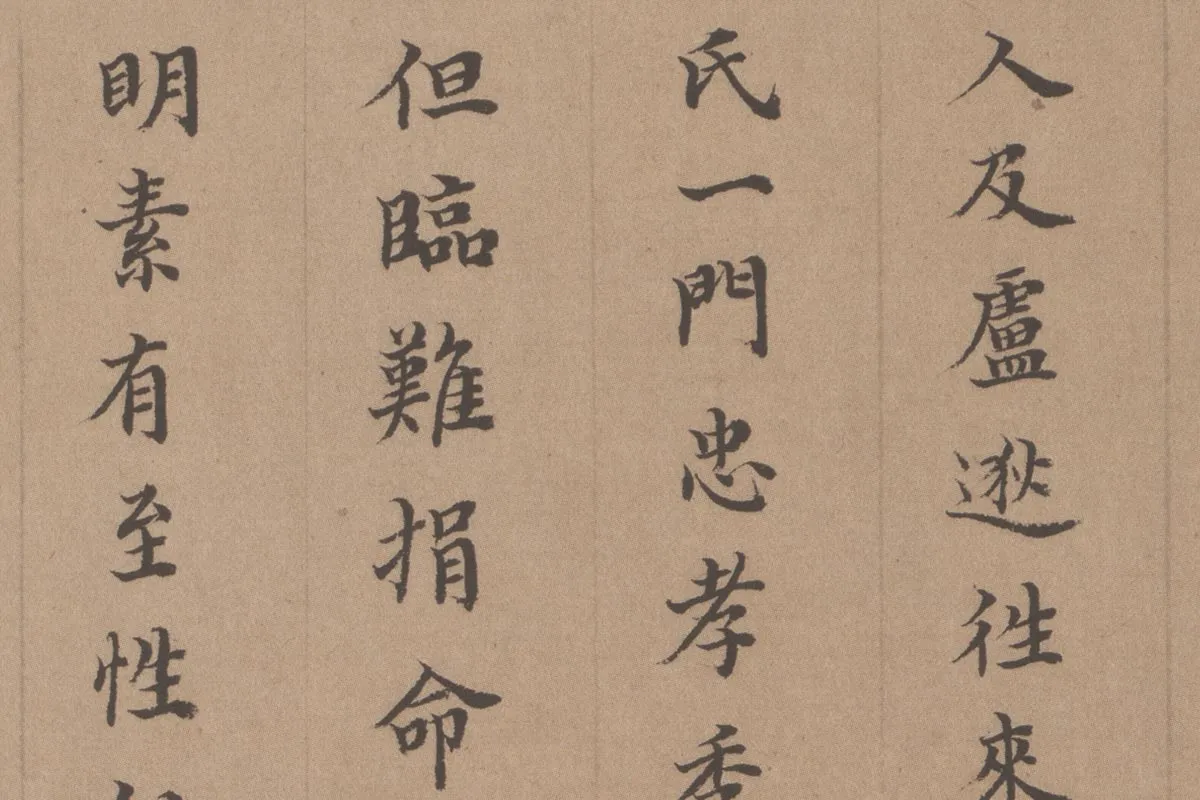 人及盧逖往來
氏一門忠孝
但臨難捐命
明素有至性